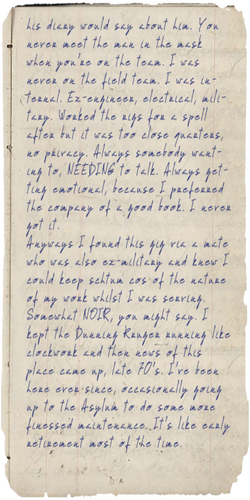 his diary would say about him. You
never meet the man in the mask
when you're on the team. I was
never on the field team. I was in-
ternal. Ex-engineer, electrical, mili-
tary. Worked the rigs for a spell
after but it was too close quarters,
no privacy. Always somebody want-
ing to, NEEDING to talk. Always get-
ting emotional, because I preferred
the company of a good book. I never
got it.
Anyways I found this gig via a mate
who was also ex-military and knew I
could keep schtum cos of the nature
of my work whilst I was serving.
Somewhat NOIR, you might say. I
kept the Dunning Ranger running like
clockwork and then news of this
place came up, late 70's. I've been
here ever since, occasionally going
up to the Asylum to do some more
finessed maintenance. It's like early
retirement most of the time.